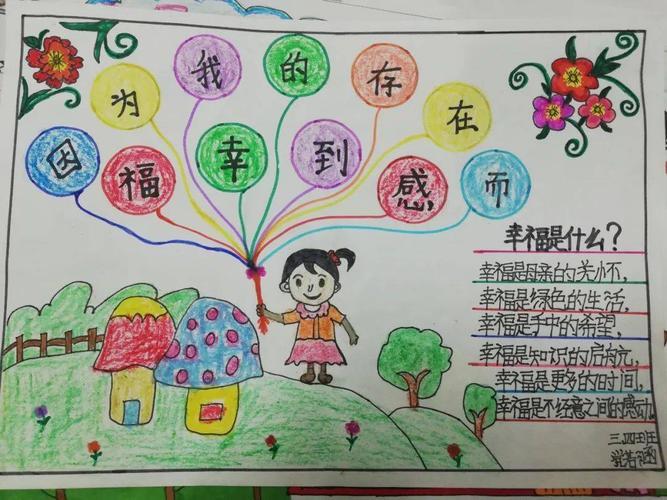 因为我的存在而
感到幸福
幸福是什么?
幸福是母亲的关怀,
幸福是绿色的生活,
幸福是手中的希望,
幸福是知识的启航,
幸福是更多的时间,
幸福是不经意之间的感动.
三.四班